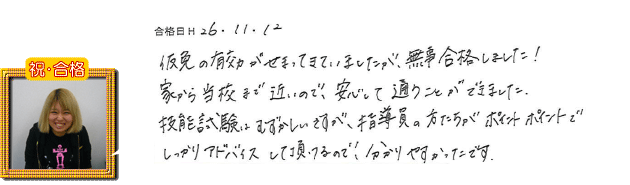 合格日H 26.11.12
祝・合格
仮免の有効がせまってきていましたが、無事合格しました！
家から当校まで近いので、安心して通うことができました.
技能試験はむずかしいですが、指導員の方たちがポイントポイントで
しっかりアドバイスして頂けるので、分かりやすかったです.